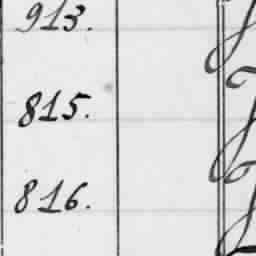 913.
815.
816.